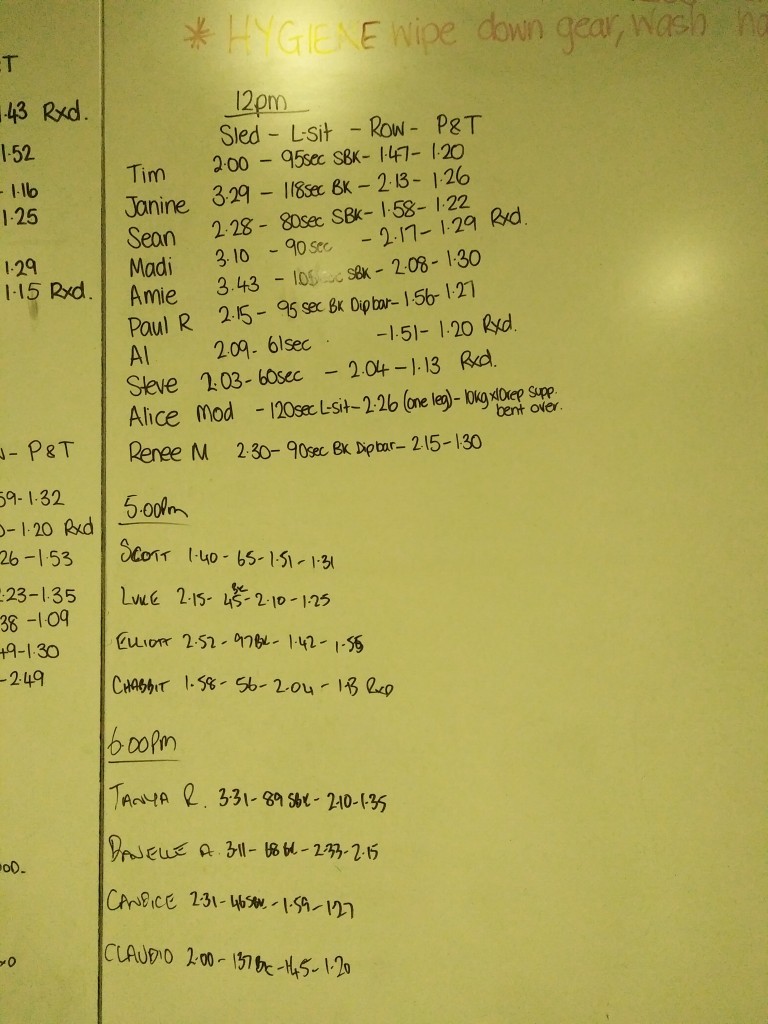 * HYGIENE wipe down gear, wash
T
.43 Rxd.
1.52
- 1.16
1.25
1.29
1.15 Rxd.
- P&T
59-1.32
- 1.20 Rxd
26 - 1.53
2.23-1.35
38 - 1.09
49-1.30
- 2.49
12pm
Sled - L-sit - Row - P&T
Tim 2.00 - 95sec SBK - 1.47 - 1.20
Janine 3.29 - 118sec BK - 2.13 - 1.26
Sean 2.28 - 80sec SBK - 1.58 - 1.22
Madi 3.10 - 90 sec - 2.17 - 1.29 Rxd.
Amie 3.43 - SBK - 2.08 - 1.30
Paul R 2.15 - 95 sec BK Dip bar - 1.56 - 1.27
Al 2.09 - 61sec - 1.51 - 1.20 Rxd.
Steve 2.03 - 60sec - 2.04 - 1.13 Rxd.
Alice Mod - 120sec L-sit - 2.26 (one leg) - 10kg x10rep supp. bent over.
Renee M 2.30 - 90sec BK Dip bar - 2.15 - 1.30
5.00pm
SCOTT 1.40 - 65 - 1.51 - 1.31
LUKE 2.15 - 45 BK - 2.10 - 1.25
ELLIOTT 2.52 - 97BK - 1.42 -
CHABBIT 1.58 - 56 - 2.04 - Rxd
6.00pm
TANYA R. 3.31 - 89 SBK - 2.10 - 1.35
DANELLE A 3.11 - 68 BK - 2.33 - 2.15
CANDICE 2.31 - 46SBK - 1.59 - 1.27
CLAUDIO 2.00 - 137 BK - 1.45 - 1.20